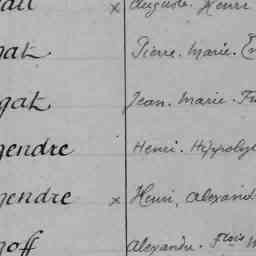 x Auguste. Henri
gat Pierre. Marie.
gat Jean. Marie.
gendre Henri. Hippolyte
gendre x Henri, Alexand
goff Alexandre. flois